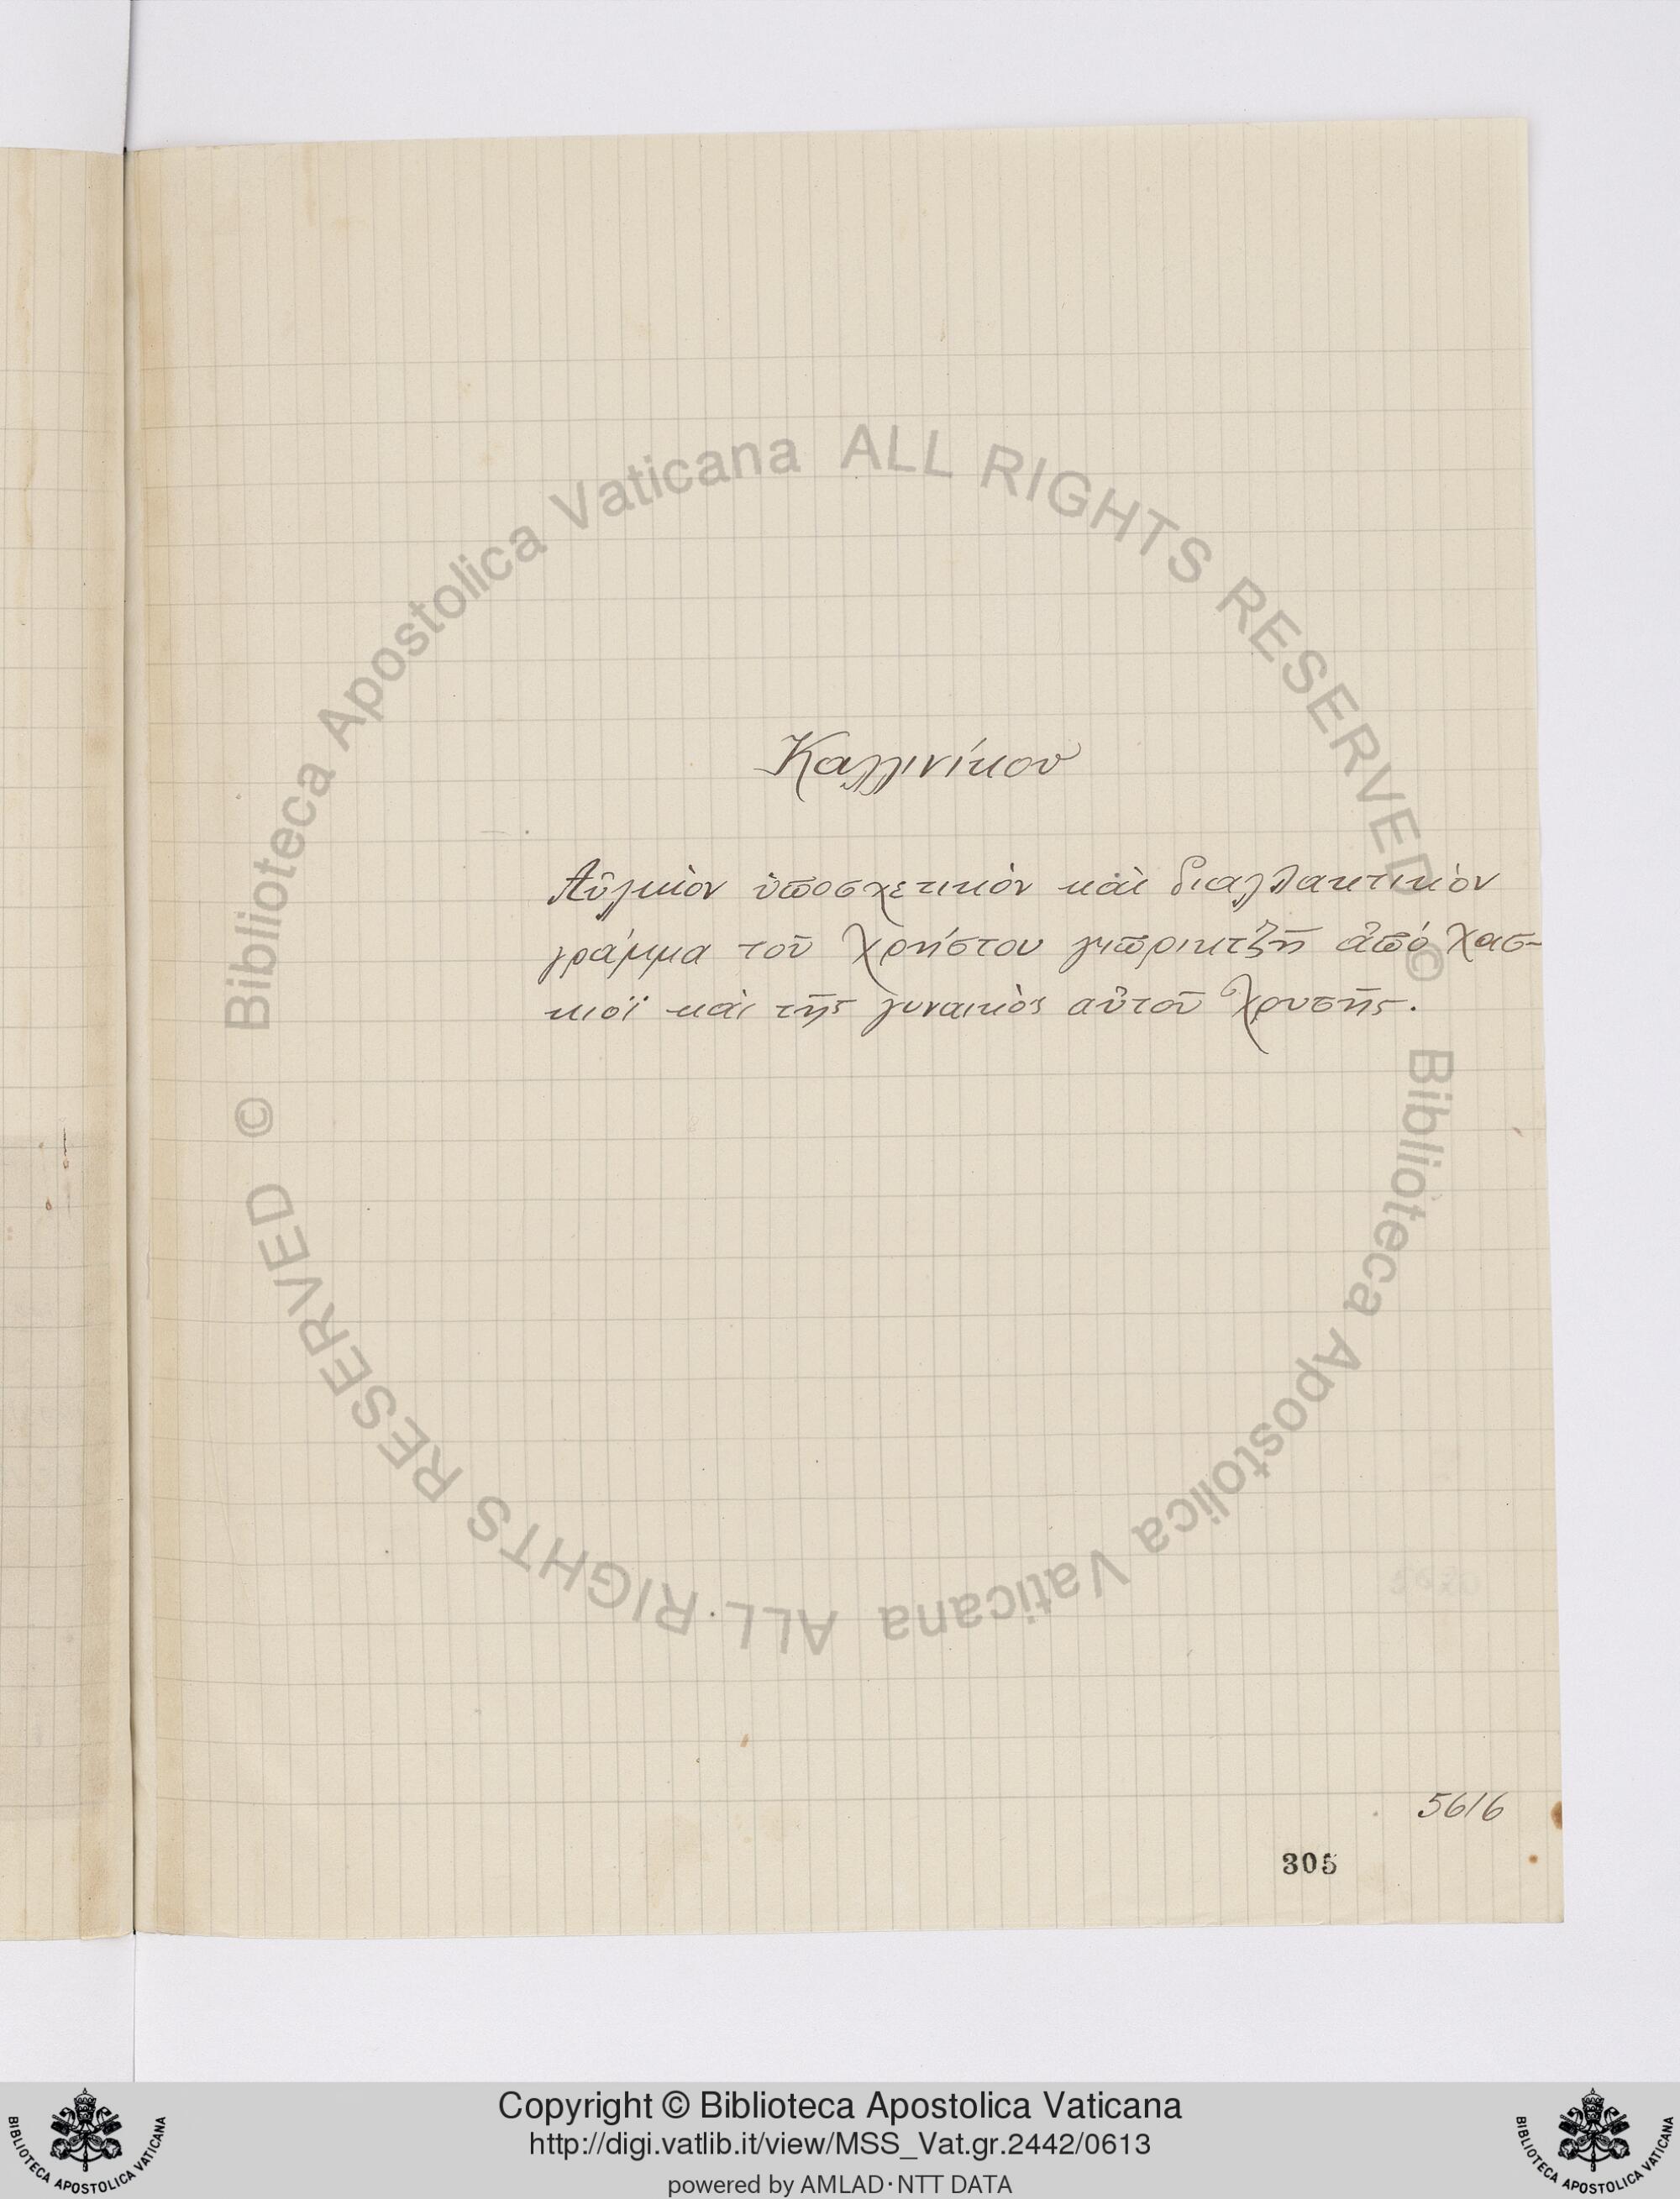 Καλλινίκου
Αὐλικὸν ὑποσχετικὸν καὶ διαλλακτικὸν
γράμμα τοῦ Χρήστου γιπρικτζῆ ἀπὸ Χασ-
κιοϊ καὶ τῆς γυναικὸς αὐτοῦ Χρυσῆς.
5616
305
© Biblioteca Apostolica Vaticana ALL RIGHTS RESERVED
© Biblioteca Apostolica Vaticana ALL RIGHTS RESERVED
Copyright © Biblioteca Apostolica Vaticana
http://digi.vatlib.it/view/MSS_Vat.gr.2442/0613
powered by AMLAD·NTT DATA
BIBLIOTECA APOSTOLICA VATICANA
BIBLIOTECA APOSTOLICA VATICANA